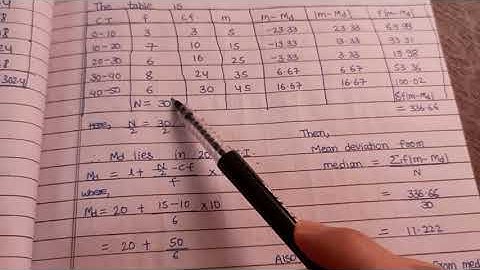 The table is
C.I f cf m m-Md |m-Md| f|m-Md|
0-10 3 3 5 -23.33 23.33 69.99
10-20 7 10 15 -13.33 13.33 93.31
20-30 6 16 25 -3.33 3.33 19.98
30-40 8 24 35 6.67 6.67 53.36
40-50 6 30 45 16.67 16.67 100.02
N = 30 Σf|m-Md|
= 336.66
Here, N/2 = 30/2
∴ Md lies in 20 C.I.
Md = l + (N/2 - cf)/f ×
where,
Md = 20 + (15-10)/6 × 10
= 20 + 50/6
Then,
Mean deviation from
median = Σf|m-Md|/N
= 336.66/30
= 11.222
Also
From med